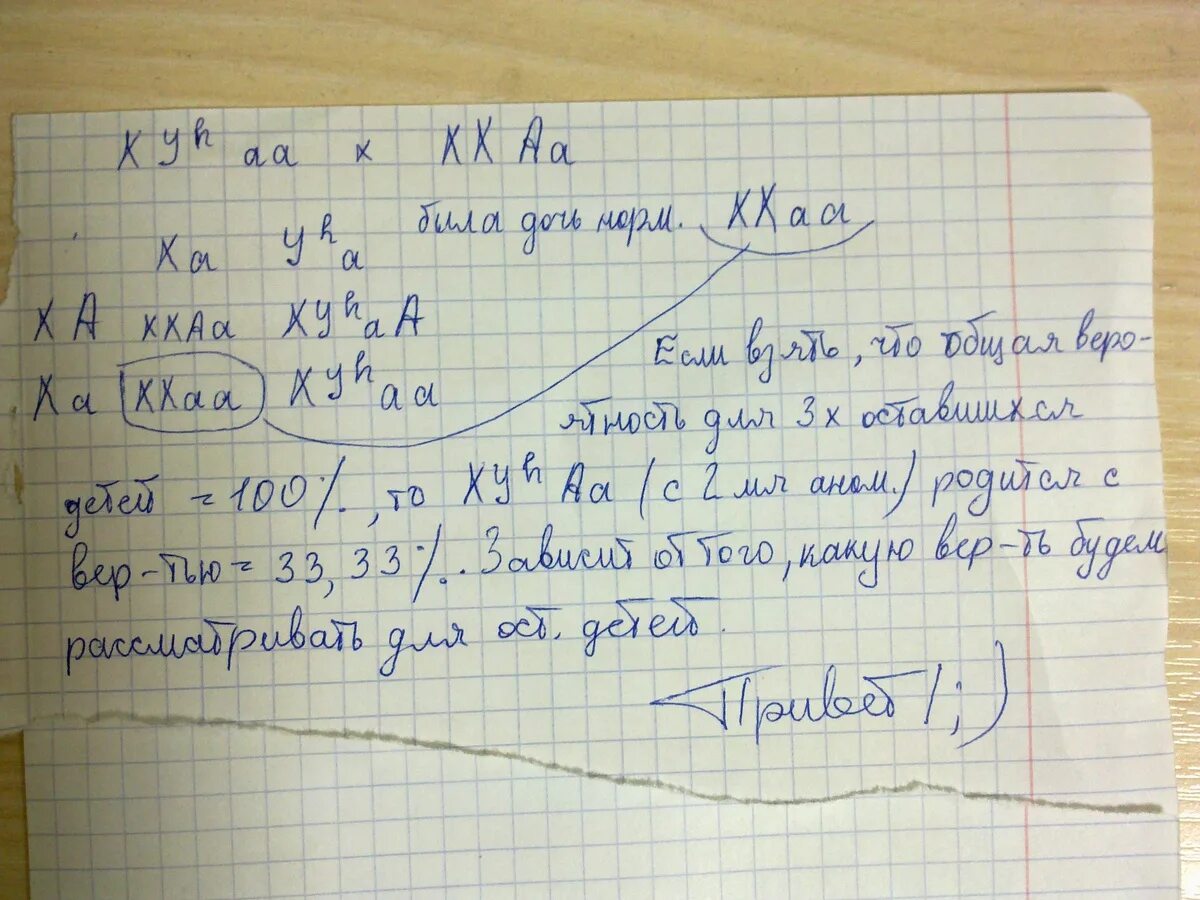 XYʰ aa x XX Aa
была дочь норм. XXaa
Xa Yʰa
XA XXAa XYʰaA
Xa XXaa XYʰaa
Если взять, что общая веро-
ятность для 3х оставшихся
детей = 100%, то XYʰ Aa (с 2 мя аном.) родится с
вер-тью = 33,33%. Зависит от того, какую вер-ть будем
рассматривать для ост. детей.
Привет! ;)